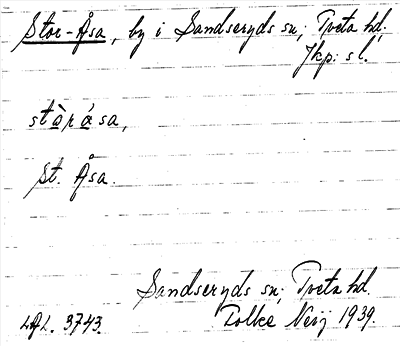 Stor-Åsa, by i Sandseryds sn, Tveta hd,
Jkp. s l.
stòrása,
St. Åsa.
Sandseryds sn, Tveta hd.
3743. 1939